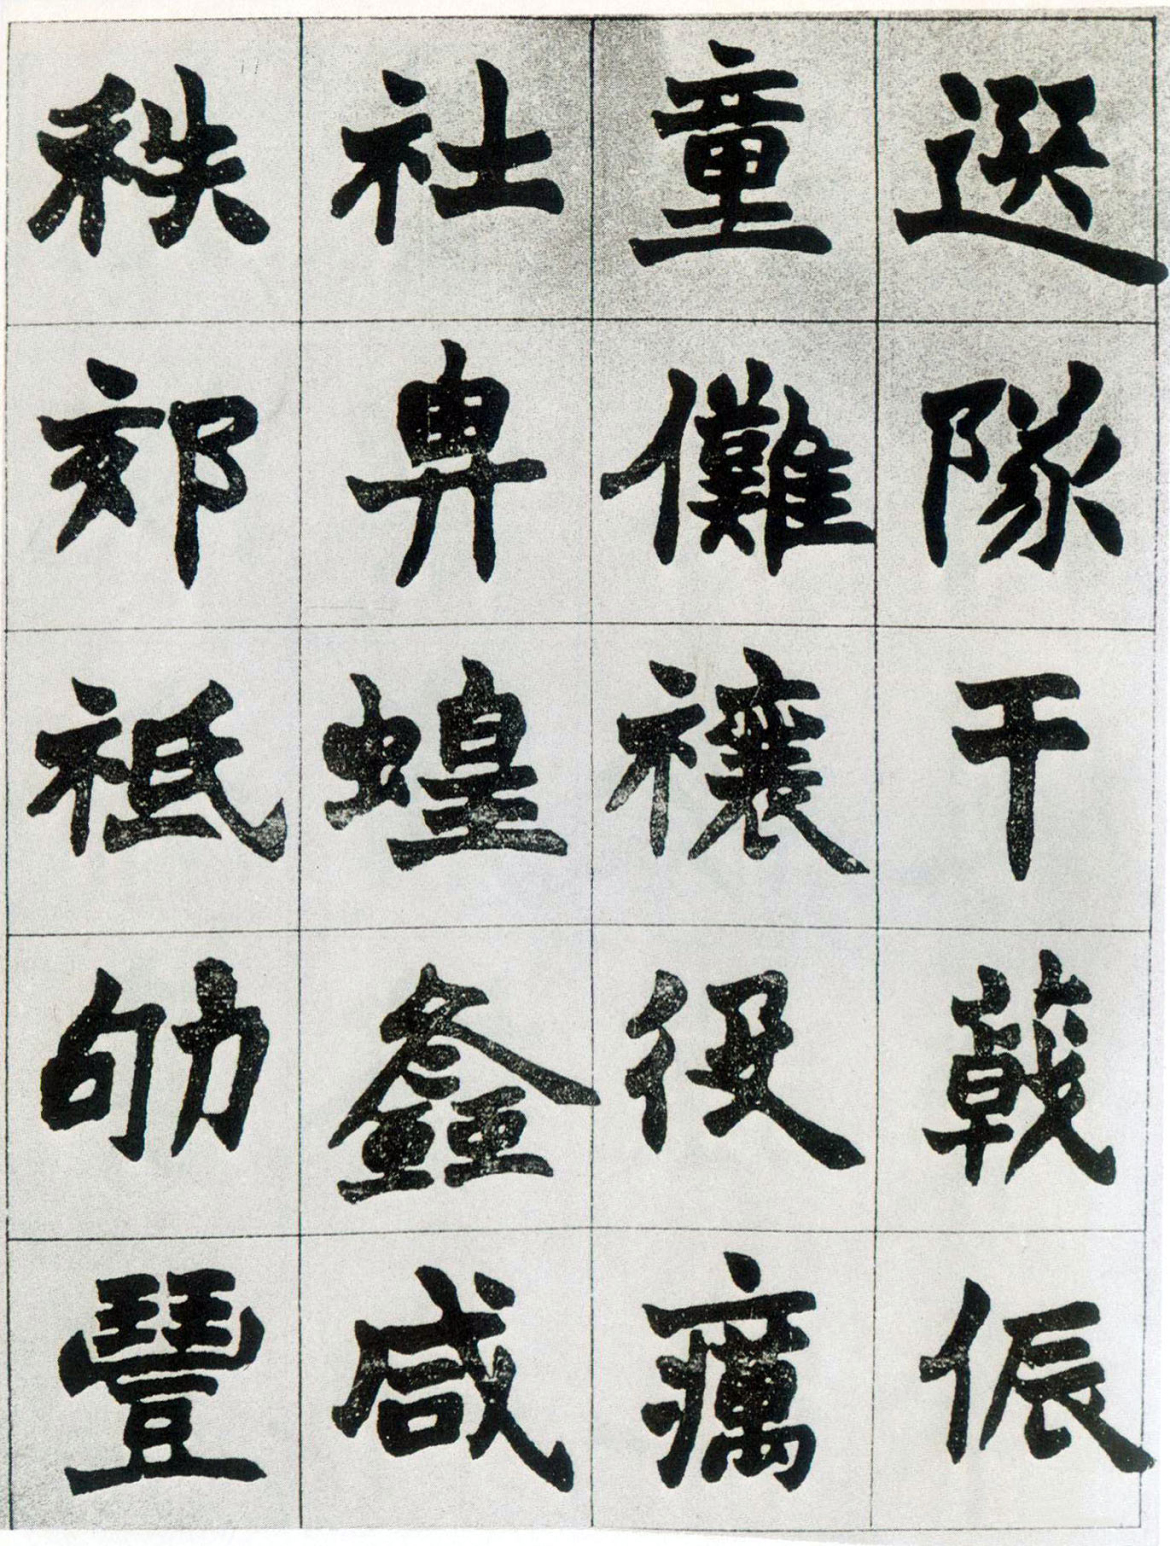 选隊干戟侲
童儺禳役癘
社畀蝗螽咸
秩郊祗劬豐